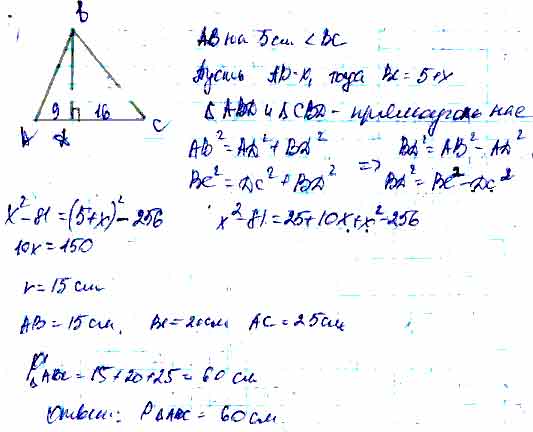 B
9 16
A D C
AB на 5 см < BC
Пусть AD-x, тогда BC = 5+x
Δ ABD и Δ CBD -
AB² = AD² + BD² => BD² = AB² - AD²
BC² = DC² + BD² BD² = BC² - DC²
x² - 81 = (5+x)² - 256 x² - 81 = 25 + 10x + x² - 256
10x = 150
x = 15 см
AB = 15 см, BC = 20 см AC = 25 см
P Δ ABC = 15 + 20 + 25 = 60 см
Ответ: P Δ ABC = 60 см.